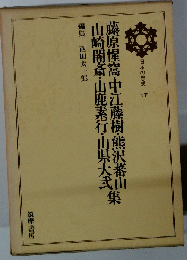 日本の思想
17
藤原惺窩・中江藤樹・熊沢蕃山
山崎闇斎・山鹿素行・山県大弐 集
筑摩書房